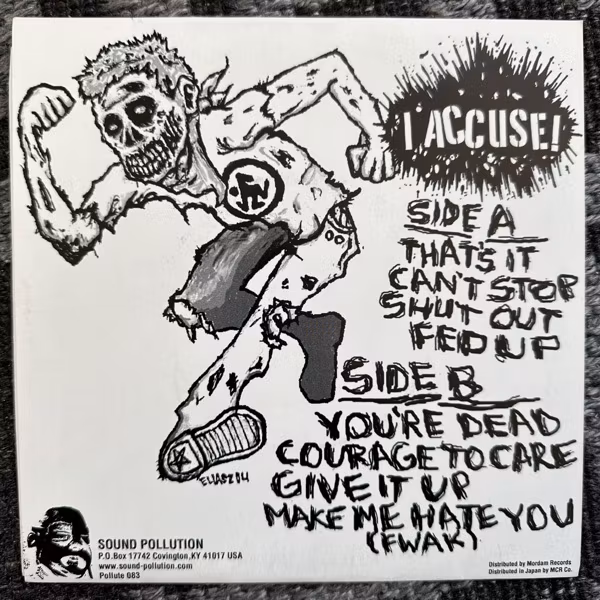 I ACCUSE!
SIDE A
THAT'S IT
CAN'T STOP
SHUT OUT
FED UP
SIDE B
YOU'RE DEAD
COURAGE TO CARE
GIVE IT UP
MAKE ME HATE YOU
(FWAK)
SOUND POLLUTION
P.O.Box 17742 Covington,KY 41017 USA
www.sound-pollution.com
Pollute 083
Distributed by Mordam Records
Distributed in Japan by MCR Co.